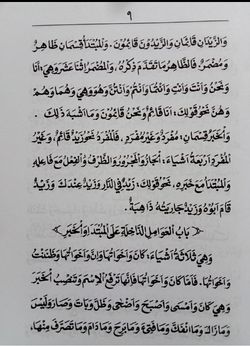 ٩
وَالزَّيْدَانِ قَائِمَانِ وَالزَّيْدُونَ قَائِمُونَ . وَالْمُبْتَدَأُ قِسْمَانِ ظَاهِرٌ
وَمُضْمَرٌ. فَالظَّاهِرُ مَا تَقَدَّمَ ذِكْرُهُ ، وَالْمُضْمَرُ اثْنَا عَشَرَ وَهِيَ : أَنَا
وَنَحْنُ وَأَنْتَ وَأَنْتِ وَأَنْتُمَا وَأَنْتُمْ وَأَنْتُنَّ وَهُوَ وَهِيَ وَهُمَا وَهُمْ
وَهُنَّ نَحْوُ قَوْلِكَ : أَنَا قَائِمٌ وَنَحْنُ قَائِمُونَ وَمَا أَشْبَهَ ذَلِكَ .
وَالْخَبَرُ قِسْمَانِ : مُفْرَدٌ وَغَيْرُ مُفْرَدٍ ، فَالْمُفْرَدُ نَحْوُ زَيْدٌ قَائِمٌ، وَغَيْرُ
الْمُفْرَدِ أَرْبَعَةُ أَشْيَاءَ : الْجَارُّ وَالْمَجْرُورُ وَالظَّرْفُ وَالْفِعْلُ مَعَ فَاعِلِهِ
وَالْمُبْتَدَأُ مَعَ خَبَرِهِ ، نَحْوُ قَوْلِكَ : زَيْدٌ فِي الدَّارِ وَزَيْدٌ عِنْدَكَ وَزَيْدٌ
قَامَ أَبُوهُ وَزَيْدٌ جَارِيَتُهُ ذَاهِبَةٌ .
﴿ بَابُ الْعَوَامِلِ الدَّاخِلَةِ عَلَى الْمُبْتَدَإِ وَالْخَبَرِ ﴾
وَهِيَ ثَلَاثَةُ أَشْيَاءَ : كَانَ وَأَخَوَاتُهَا وَإِنَّ وَأَخَوَاتُهَا وَظَنَنْتُ
وَأَخَوَاتُهَا. فَأَمَّا كَانَ وَأَخَوَاتُهَا فَإِنَّهَا تَرْفَعُ الْاِسْمَ وَتَنْصِبُ الْخَبَرَ
وَهِيَ كَانَ وَأَمْسَى وَأَصْبَحَ وَأَضْحَى وَظَلَّ وَبَاتَ وَصَارَ وَلَيْسَ
وَمَازَالَ وَمَا انْفَكَّ وَمَا فَتِئَ وَمَا بَرِحَ وَمَا دَامَ وَمَا تَصَرَّفَ مِنْهَا،